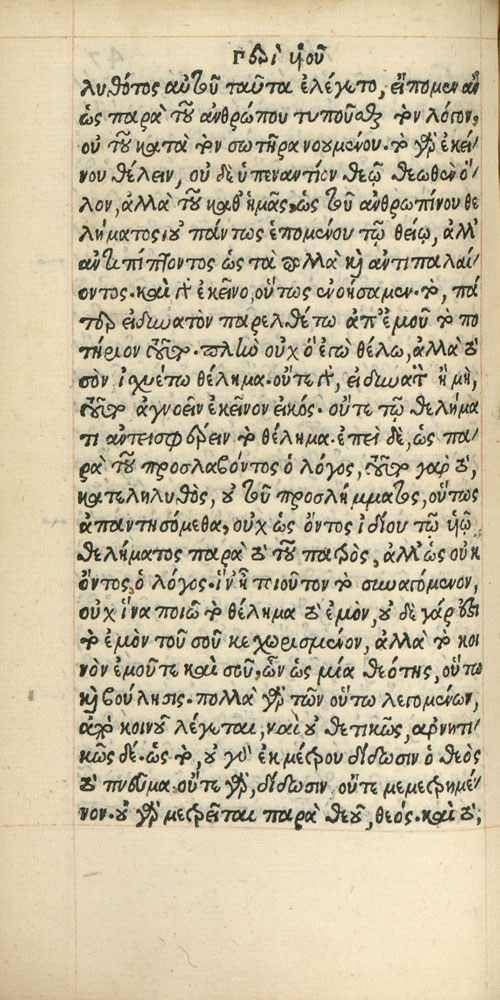 περὶ υἱοῦ
λυθότος αὐτοῦ ταῦτα ἐλέγετο, εἴπομεν ἂν
ὡς παρὰ τοῦ ἀνθρώπου τυποῦσθαι τὸν λόγον,
οὐ τοῦ κατὰ τὸν σωτῆρα νουμένου. τὸ γὰρ ἐκεί
νου θέλειν, οὐ δὲ ὑπεναντίον θεῷ θεωθὲν ὅ
λον, ἀλλὰ τοῦ καθ' ἡμᾶς, ὡς τοῦ ἀνθρωπίνου θε
λήματος οὐ πάντως ἑπομένου τῷ θείῳ, ἀλλ'
ἀντιπίπτοντος ὡς τὰ πολλὰ καὶ ἀντιπαλαί
οντος. καὶ γὰρ ἐκεῖνο, οὕτως ἐνοήσαμεν. τὸ, πά
τερ εἰ δυνατὸν παρελθέτω ἀπ' ἐμοῦ τὸ πο
τήριον τοῦτο. πλὴν οὐχ ὃ ἐγὼ θέλω, ἀλλὰ τὸ
σὸν ἰσχυέτω θέλημα. οὔτε γὰρ, εἰ δυνατὸν ἢ μὴ,
τοῦτο ἀγνοεῖν ἐκεῖνον εἰκός. οὔτε τῷ θελήμα
τι ἀντεισφέρειν τὸ θέλημα. ἐπεὶ δὲ, ὡς πα
ρὰ τοῦ προσλαβόντος ὁ λόγος, τοῦτο γὰρ τὸ,
κατεληλυθὸς, οὐ τοῦ προσλήμματος, οὕτως
ἀπαντησόμεθα, οὐχ ὡς ὄντος ἰδίου τῷ υἱῷ
θελήματος παρὰ τὸ τοῦ πατρὸς, ἀλλ' ὡς οὐκ
ὄντος ὁ λόγος. ἵν' ᾖ τοιοῦτον τὸ συναγόμενον,
οὐχ ἵνα ποιῶ τὸ θέλημα τὸ ἐμὸν, οὐ δὲ γάρ ἐστι
τὸ ἐμὸν τοῦ σοῦ κεχωρισμένον, ἀλλὰ τὸ κοι
νὸν ἐμοῦ τε καὶ σοῦ, ὧν ὡς μία θεότης, οὕτω
καὶ βούλησις. πολλὰ γὰρ τῶν οὕτω λεγομένων,
ἀπὸ κοινοῦ λέγεται, καὶ οὐ θετικῶς, ἀρνητι
κῶς δέ. ὡς τὸ, οὐ γὰρ ἐκ μέτρου δίδωσιν ὁ θεὸς
τὸ πνεῦμα. οὔτε γὰρ, δίδωσιν οὔτε μεμετρημέ
νον. οὐ γὰρ μετρεῖται παρὰ θεοῦ, θεός. καὶ τὸ,